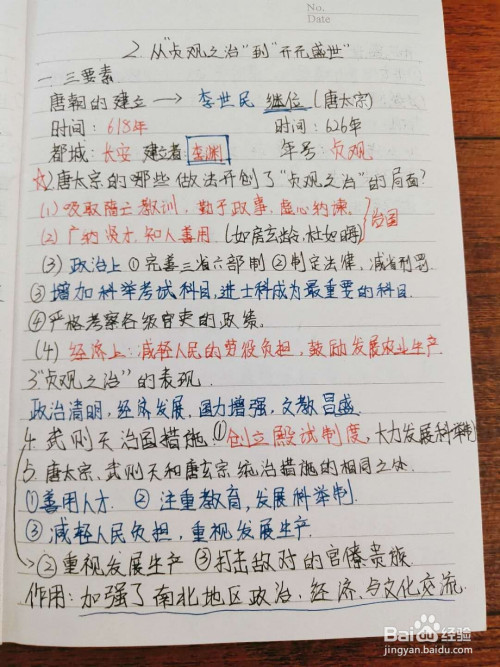 No.
Date
2. 从"贞观之治"到"开元盛世"
一 三要素
唐朝的建立 → 李世民 继位 (唐太宗)
时间:618年 时间:626年
都城:长安 建立者:李渊 年号:贞观
☆2唐太宗的哪些做法开创了"贞观之治"的局面?
(1) 吸取隋亡教训,勤于政事,虚心纳谏
(2) 广纳贤才,知人善用 (如房玄龄,杜如晦) }治国
(3) 政治上 ①完善三省六部制 ②制定法律,减省刑罚
③增加科举考试科目,进士科成为最重要的科目.
④严格考察各级官吏的政绩。
(4) 经济上:减轻人民的劳役负担,鼓励发展农业生产
3"贞观之治"的表现.
政治清明,经济发展.国力增强,文教昌盛
4.武则天治国措施 ①创立殿试制度,大力发展科举制
5.唐太宗、武则天和唐玄宗统治措施的相同之处.
①善用人才. ②注重教育,发展科举制.
③减轻人民负担,重视发展生产.
→②重视发展生产 ③打击敌对的官僚贵族.
作用:加强了南北地区政治、经济、与文化交流.
Baidu经验
jingyan.baidu.com